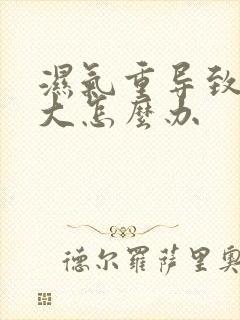 濕氣重导致
大怎麼办
德尔羅萨里奧